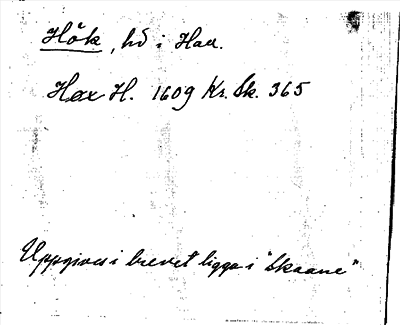 Hök, hd i Hall.
Høx H. 1609 Kr. Sk. 365
Uppgives i brevet ligga i "Skaane"